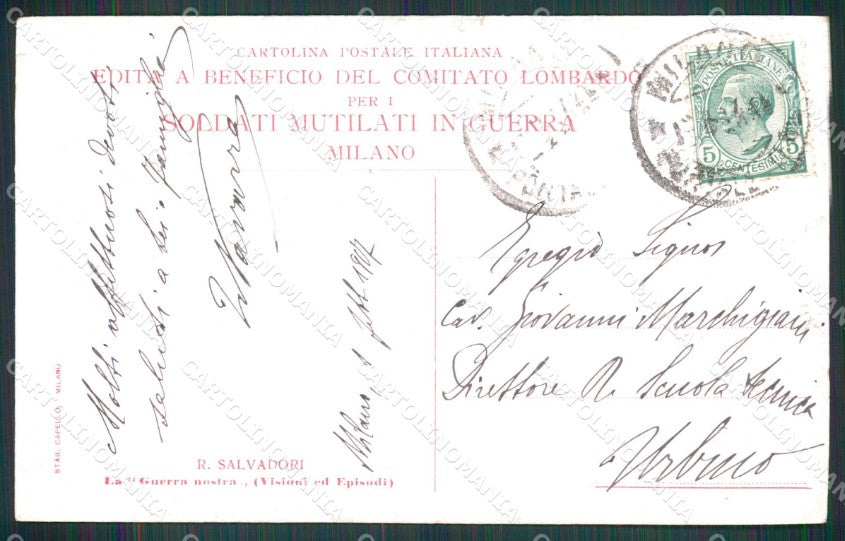 CARTOLINA POSTALE ITALIANA
EDITA A BENEFICIO DEL COMITATO LOMBARDO
PER I
SOLDATI MUTILATI IN GUERRA
MILANO
MILANO
POSTE ITALIANE
5 CENTESIMI 5
Molti affettuosi devoti
saluti a Lei e famiglia
Navarra
Milano 1 febb 1917
Egregio Signor
Cav. Giovanni Marchigiani
Direttore R. Scuola tecnica
Urbino
STAB. CAPELLO, MILANO
R. SALVADORI
La "Guerra nostra„ (Visioni ed Episodi)
CARTOLINOMANIA